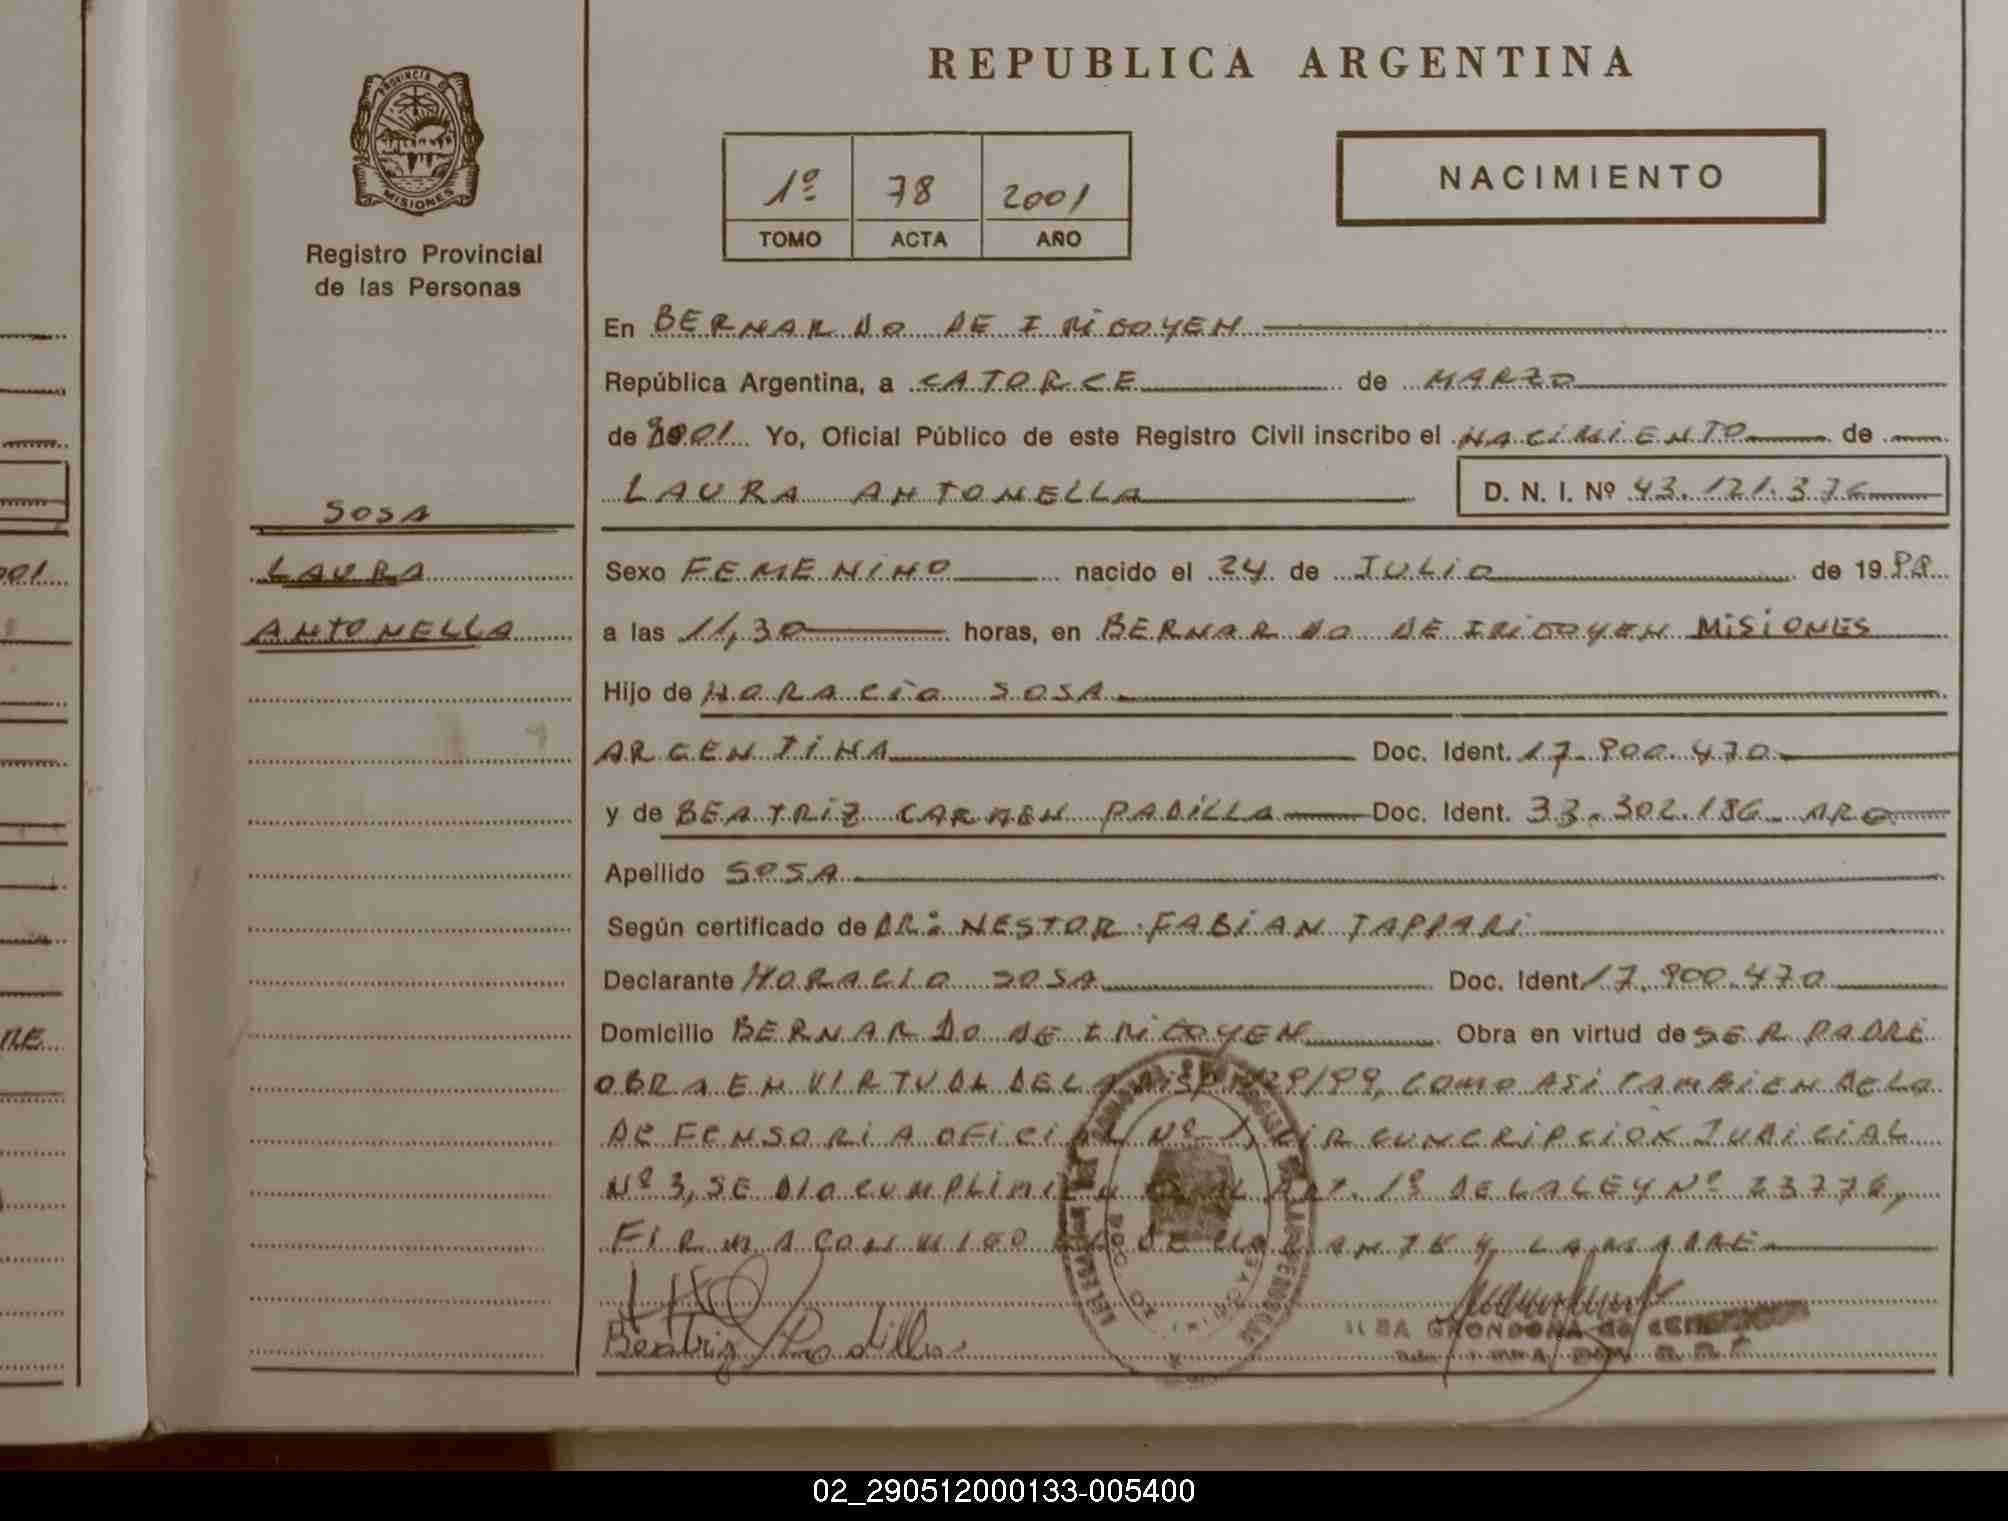 REPUBLICA ARGENTINA
PROVINCIA DE
MISIONES
Registro Provincial
de las Personas
1º 78 2001
TOMO ACTA AÑO
NACIMIENTO
En BERNARDO DE IRIGOYEN
República Argentina, a CATORCE de MARZO
de 2001 Yo, Oficial Público de este Registro Civil inscribo el NACIMIENTO de
LAURA ANTONELLA D. N. I. Nº 43.121.376
SOSA
LAURA
ANTONELLA
Sexo FEMENINO nacido el 24 de JULIO de 19
a las 11,30 horas, en BERNARDO DE IRIGOYEN MISIONES
Hijo de HORACIO SOSA
ARGENTINA Doc. Ident. 17.900.470
y de BEATRIZ CARMEN PADILLA Doc. Ident. 33.302.186 ARG
Apellido SOSA
Según certificado de DR: NESTOR FABIAN TAPPARI
Declarante HORACIO SOSA Doc. Ident 17.900.470
Domicilio BERNARDO DE IRIGOYEN Obra en virtud de SER PADRE
OBRA EN VIRTUD DE LA DISP 1129/99, COMO ASI TAMBIEN DE LA
DEFENSORIA OFICIAL Nº 1 CIRCUNCRIPCION JUDICIAL
Nº 3, SE DIO CUMPLIMIENTO AL ART. 1º DE LA LEY Nº 23776,
FIRMA CONMIGO EL DECLARANTE Y LA MADRE
Beatriz Padilla
GRONDONA de
001
RE
02_290512000133-005400